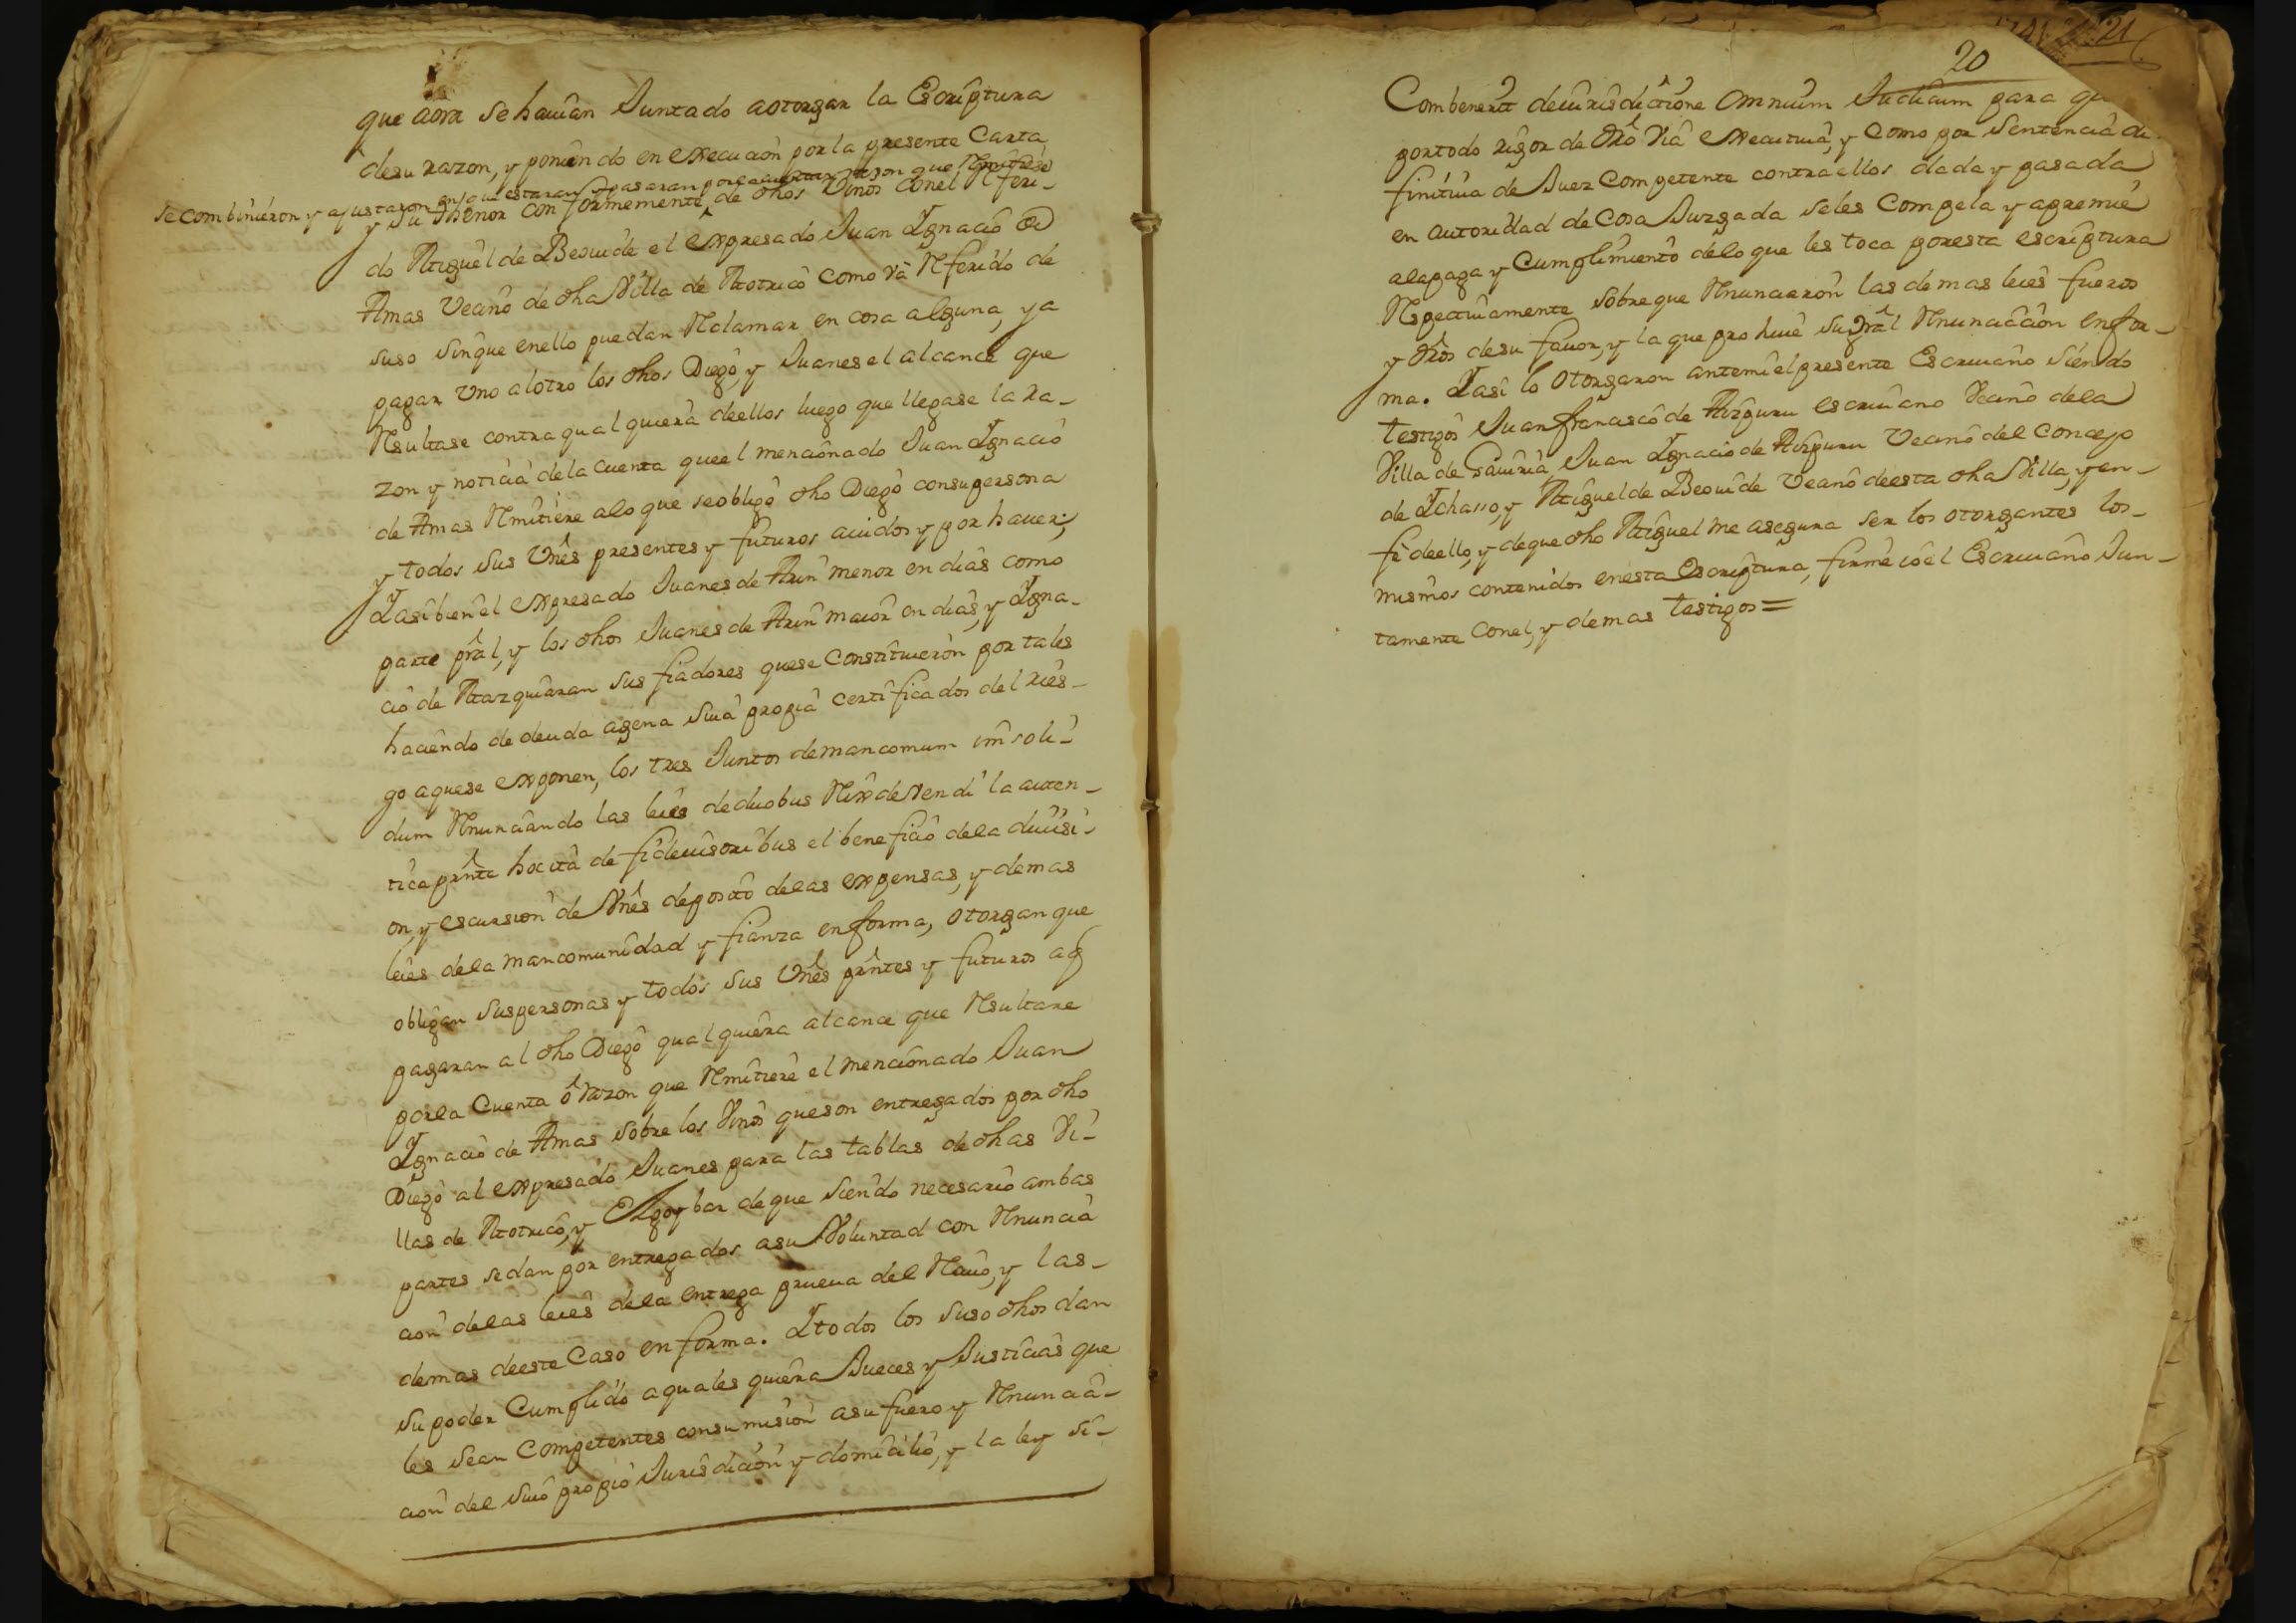 que aora se hauian Juntado aotorgar la Escriptura
desu razon, y poniendo en execucion por la presente Carta
se combinieron y ajustaron en que estaran y pasaran por la cuenta razon que Remitiere
y su thenor conformemente de dhos Vinos conel Referi-
do Miguel de Beouide el expresado Juan Ignacio de
Amas Vecino de dha Villa de Motrico como va Referido de
suso sinque enello puedan Reclamar en cosa alguna, y a
pagar Uno alotro los dhos Diego, y Juanes el alcance que
Resultase contra qualquiera deellos luego que llegase la Ra-
zon y noticia dela cuenta que el mencionado Juan Ignacio
de Amas Remitiere alo que seobligo dho Diego consupersona
y todos sus Vnês presentes y futuros auidos y por hauer;
Iasibien el expresado Juanes de Arin menor en dias como
parte prâl, y los dhos Juanes de Arin maior en dias, y Igna-
cio de Mazquiaran sus fiadores quese Constituieron por tales
haciendo de deuda agena suia propia certificados del ries-
go aquese exponen, los tres Juntos demancomum imsoli-
dum Renunciando las leies deduobus Rexdevendi la auten-
tica prête hocita de fideiusoribus el beneficio dela diuisi-
on, y escursion de Vnês deposito delas expensas, y demas
leies dela mancomunidad y fianza enforma, otorgan que
obligan suspersonas y todos sus Vnês prêntes y futuros aq
pagaran al dho Diego qualquiera alcance que Resultare
porla Cuenta ô razon que Remitiere el mencionado Juan
Ignacio de Amas sobre los Vinos queson entregados por dho
Diego al expresado Juanes para las tablas de dhas Vi-
llas de Motrico, y Elgoybar deque siendo necesario ambas
partes sedan por entregados asu Voluntad con Renuncia
cion delas leies dela entrega prueua del Reciuo, y las-
demas deeste Caso en forma. I todos los suso dhos dan
su poder Cumplido aquales quiera Jueces y Justicias que
les sean Competentes consumision asu fuero y Renuncia-
cion del suio propio Jurisdicion y domicilio, y la ley si-
20
21
Combenerit deiurisdictione Omnium Judicum para que
portodo rigor de drô via executiua, y como por sentencia de
finitiua de Juez Competente contra ellos dada y pasada
en autoridad de Cosa Juzgada seles Compela y apremie
alapaga y Cumplimiento delo que les toca poresta escriptura
Respectiuamente sobreque Renunciaron las demas leies fueros
y drôs desu fauor, y la que prohiue su grâl Renunciacion enfor-
ma. Iasi lo Otorgaron antemi el presente Escriuano siendo
testigos Juan francisco de Aizpuru escriuano Vecino dela
Villa de Gauiria, Juan Ignacio de Aizpuru Vecino del Concejo
de Ichasso, y Miguel de Beouide Vecino deesta dha Villa, y en-
fe deello, y deque dho Miguel me asegura ser los otorgantes los-
mismos contenidos enesta Escriptura, firme io el Escriuano Jun-
tamente Conel, y demas testigos =